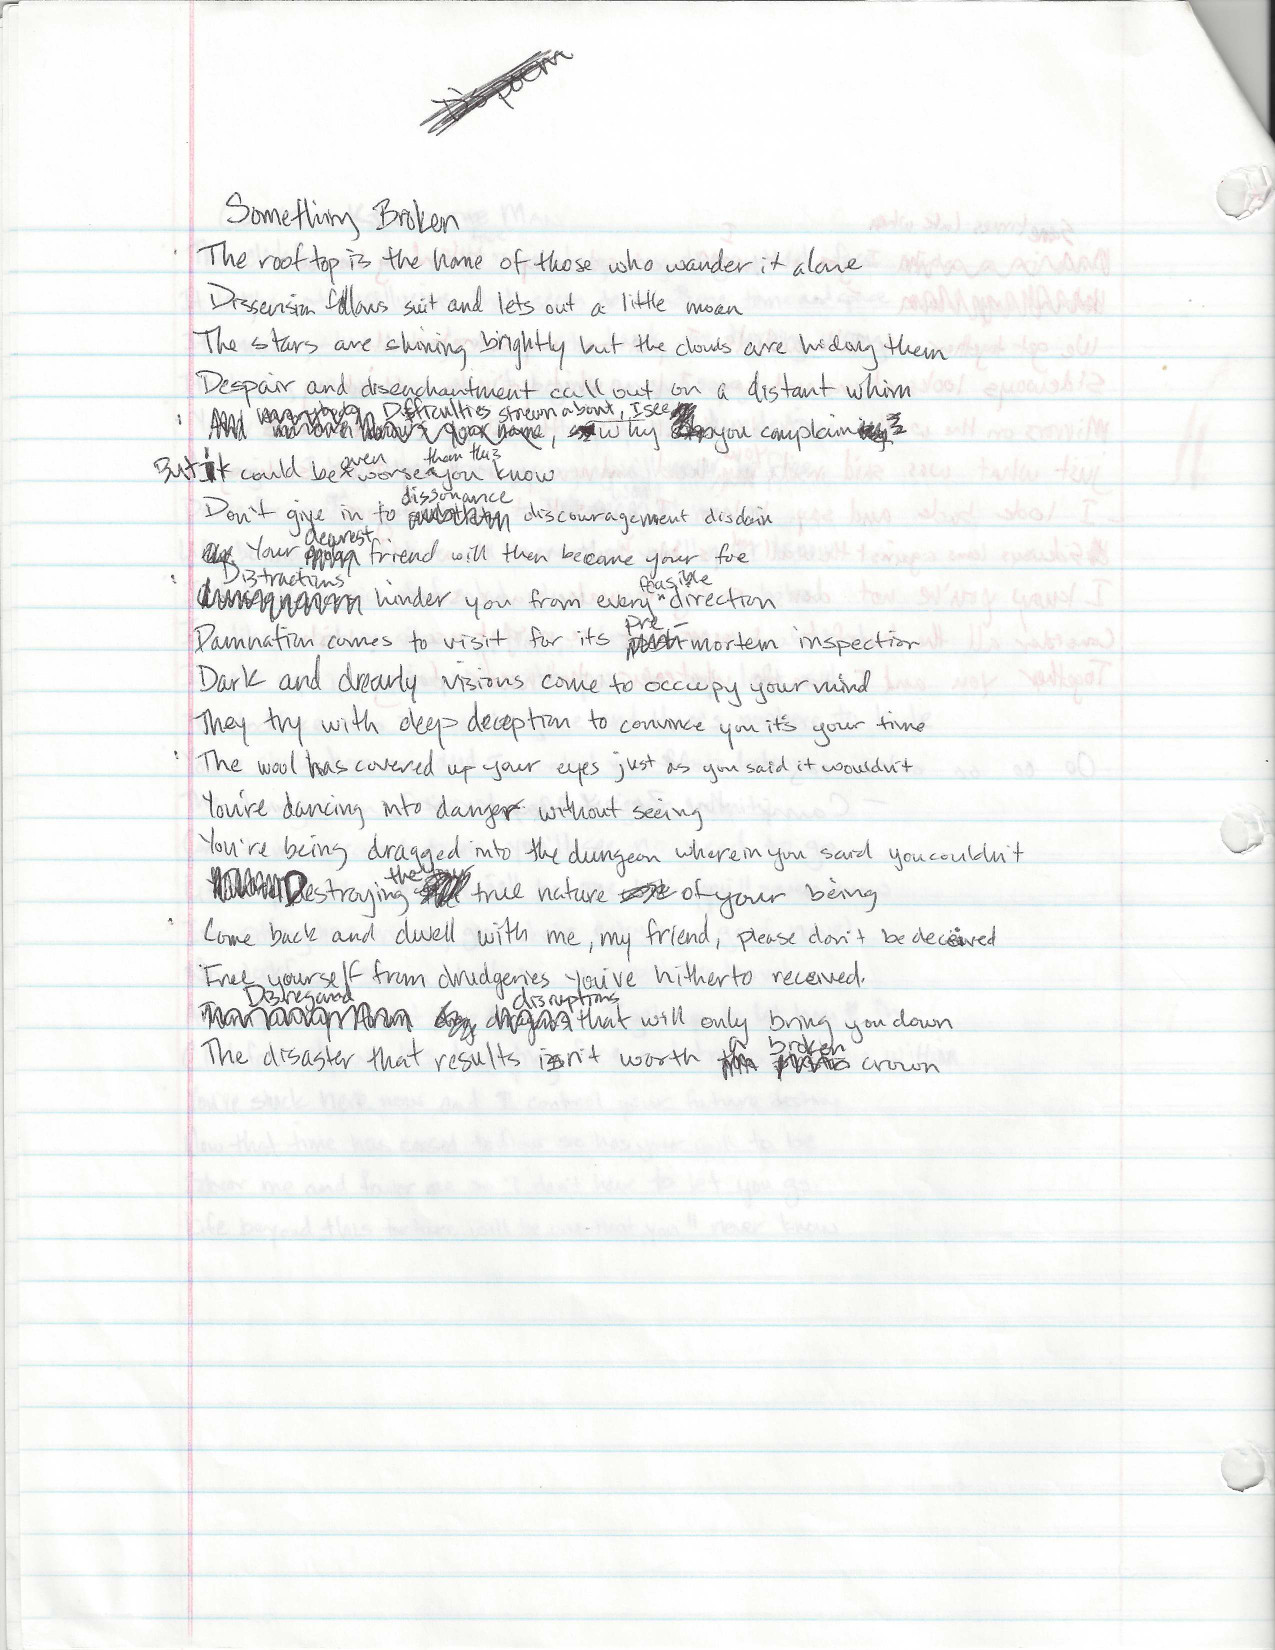 Dis poem
Something Broken
The rooftop is the home of those who wander it alone
Dissension follows suit and lets out a little moan
The stars are shining brightly but the clouds are hiding them
Despair and disenchantment call out on a distant whim
Difficulties strewn about, I see
And why you complain
even than this
But it could be worse you know
dissonance
Don't give in to discouragement disdain
dearest
Your friend will then become your foe
Distractions feasible
hinder you from every ^ direction
pre-
Damnation comes to visit for its mortem inspection
Dark and drearly visions come to occupy your mind
They try with deep deception to convince you it's your time
The wool has covered up your eyes just as you said it wouldn't
You're dancing into danger without seeing
You're being dragged into the dungeon wherein you said you couldn't
the
Destroying true nature of your being
Come back and dwell with me, my friend, please don't be deceived
Free yourself from drudgeries you've hitherto received.
Disregard disruptions
that will only bring you down
a broken
The disaster that results isn't worth crown